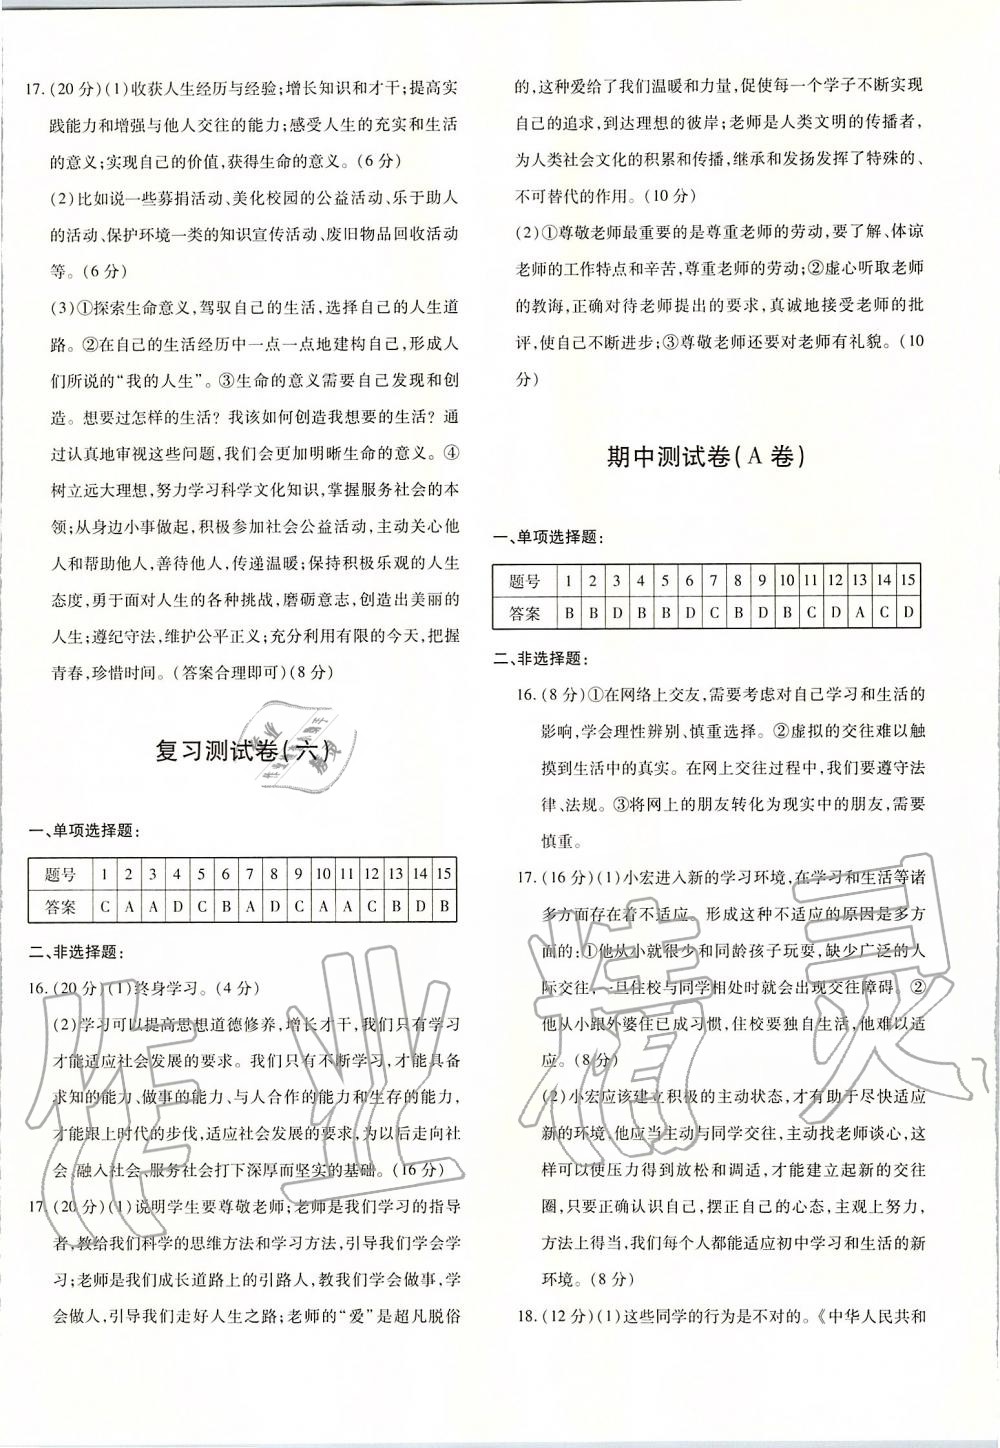 17. (20分)(1)收获人生经历与经验;增长知识和才干;提高实
践能力和增强与他人交往的能力;感受人生的充实和生活
的意义;实现自己的价值,获得生命的意义。(6分)
(2)比如说一些募捐活动、美化校园的公益活动、乐于助人
的活动、保护环境一类的知识宣传活动、废旧物品回收活动
等。(6分)
(3)①探索生命意义,驾驭自己的生活,选择自己的人生道
路。②在自己的生活经历中一点一点地建构自己,形成人
们所说的“我的人生”。③生命的意义需要自己发现和创
造。想要过怎样的生活?我该如何创造我想要的生活?通
过认真地审视这些问题,我们会更加明晰生命的意义。④
树立远大理想,努力学习科学文化知识,掌握服务社会的本
领;从身边小事做起,积极参加社会公益活动,主动关心他
人和帮助他人,善待他人,传递温暖;保持积极乐观的人生
态度,勇于面对人生的各种挑战,磨砺意志,创造出美丽的
人生;遵纪守法,维护公平正义;充分利用有限的今天,把握
青春,珍惜时间。(答案合理即可)(8分)
复习测试卷(六)
一、单项选择题:
题号 1 2 3 4 5 6 7 8 9 10 11 12 13 14 15
答案 C A A D C B A D C A A C B D B
二、非选择题:
16. (20分)(1)终身学习。(4分)
(2)学习可以提高思想道德修养,增长才干,我们只有学习
才能适应社会发展的要求。我们只有不断学习,才能具备
求知的能力、做事的能力、与人合作的能力和生存的能力,
才能跟上时代的步伐,适应社会发展的要求,为以后走向社
会、融入社会、服务社会打下深厚而坚实的基础。(16分)
17. (20分)(1)说明学生要尊敬老师;老师是我们学习的指导
者,教给我们科学的思维方法和学习方法,引导我们学会学
习;老师是我们成长道路上的引路人,教我们学会做事,学
会做人,引导我们走好人生之路;老师的“爱”是超凡脱俗
的,这种爱给了我们温暖和力量,促使每一个学子不断实现
自己的追求,到达理想的彼岸;老师是人类文明的传播者,
为人类社会文化的积累和传播,继承和发扬发挥了特殊的、
不可替代的作用。(10分)
(2)①尊敬老师最重要的是尊重老师的劳动,要了解、体谅
老师的工作特点和辛苦,尊重老师的劳动;②虚心听取老师
的教诲,正确对待老师提出的要求,真诚地接受老师的批
评,使自己不断进步;③尊敬老师还要对老师有礼貌。(10
分)
期中测试卷(A卷)
一、单项选择题:
题号 1 2 3 4 5 6 7 8 9 10 11 12 13 14 15
答案 B B D B B D C B D B C D A C D
二、非选择题:
16. (8分)①在网络上交友,需要考虑对自己学习和生活的
影响,学会理性辨别、慎重选择。②虚拟的交往难以触
摸到生活中的真实。在网上交往过程中,我们要遵守法
律、法规。③将网上的朋友转化为现实中的朋友,需要
慎重。
17. (16分)(1)小宏进入新的学习环境,在学习和生活等诸
多方面存在着不适应。形成这种不适应的原因是多方
面的:①他从小就很少和同龄孩子玩耍,缺少广泛的人
际交往,一旦住校与同学相处时就会出现交往障碍。②
他从小跟外婆住已成习惯,住校要独自生活,他难以适
应。(8分)
(2)小宏应该建立积极的主动状态,才有助于尽快适应
新的环境,他应当主动与同学交往,主动找老师谈心,这
样可以使压力得到放松和调适,才能建立起新的交往
圈,只要正确认识自己,摆正自己的心态,主观上努力,
方法上得当,我们每个人都能适应初中学习和生活的新
环境。(8分)
18. (12分)(1)这些同学的行为是不对的。《中华人民共和
作业精灵